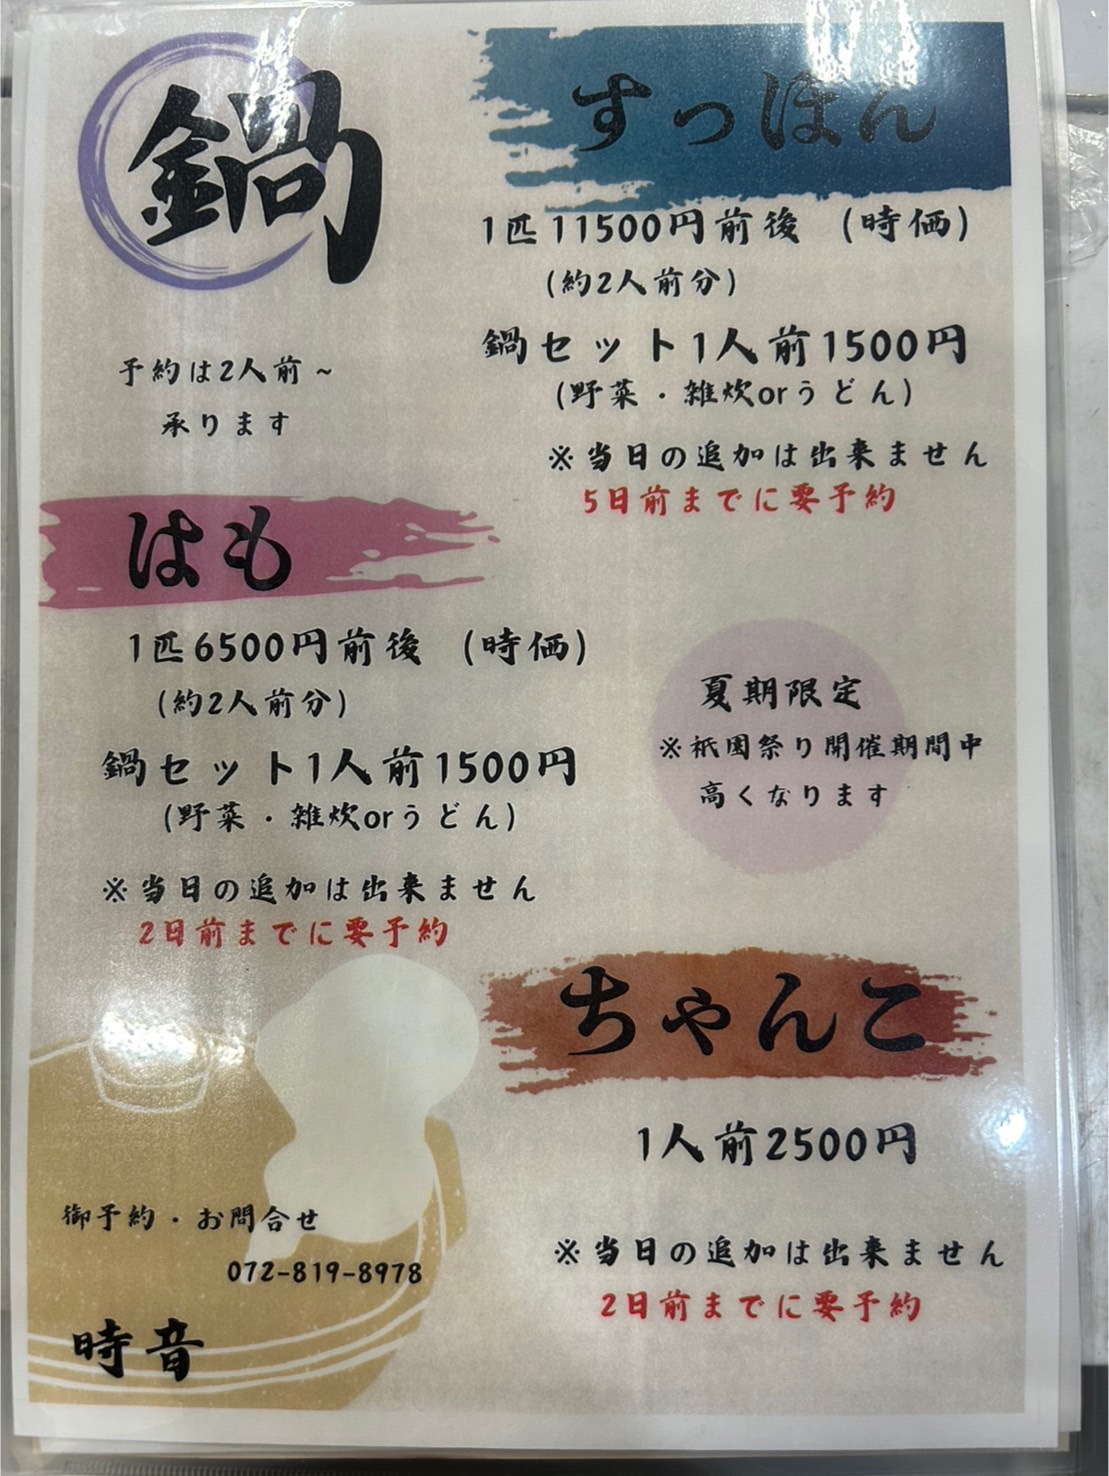 鍋
予約は2人前~
承ります
すっぽん
1匹11500円前後 (時価)
(約2人前分)
鍋セット1人前1500円
(野菜・雑炊orうどん)
※当日の追加は出来ません
5日前までに要予約
はも
1匹6500円前後 (時価)
(約2人前分)
鍋セット1人前1500円
(野菜・雑炊orうどん)
※当日の追加は出来ません
2日前までに要予約
夏期限定
※祇園祭り開催期間中
高くなります
ちゃんこ
1人前2500円
※当日の追加は出来ません
2日前までに要予約
御予約・お問合せ
072-819-8978
時音